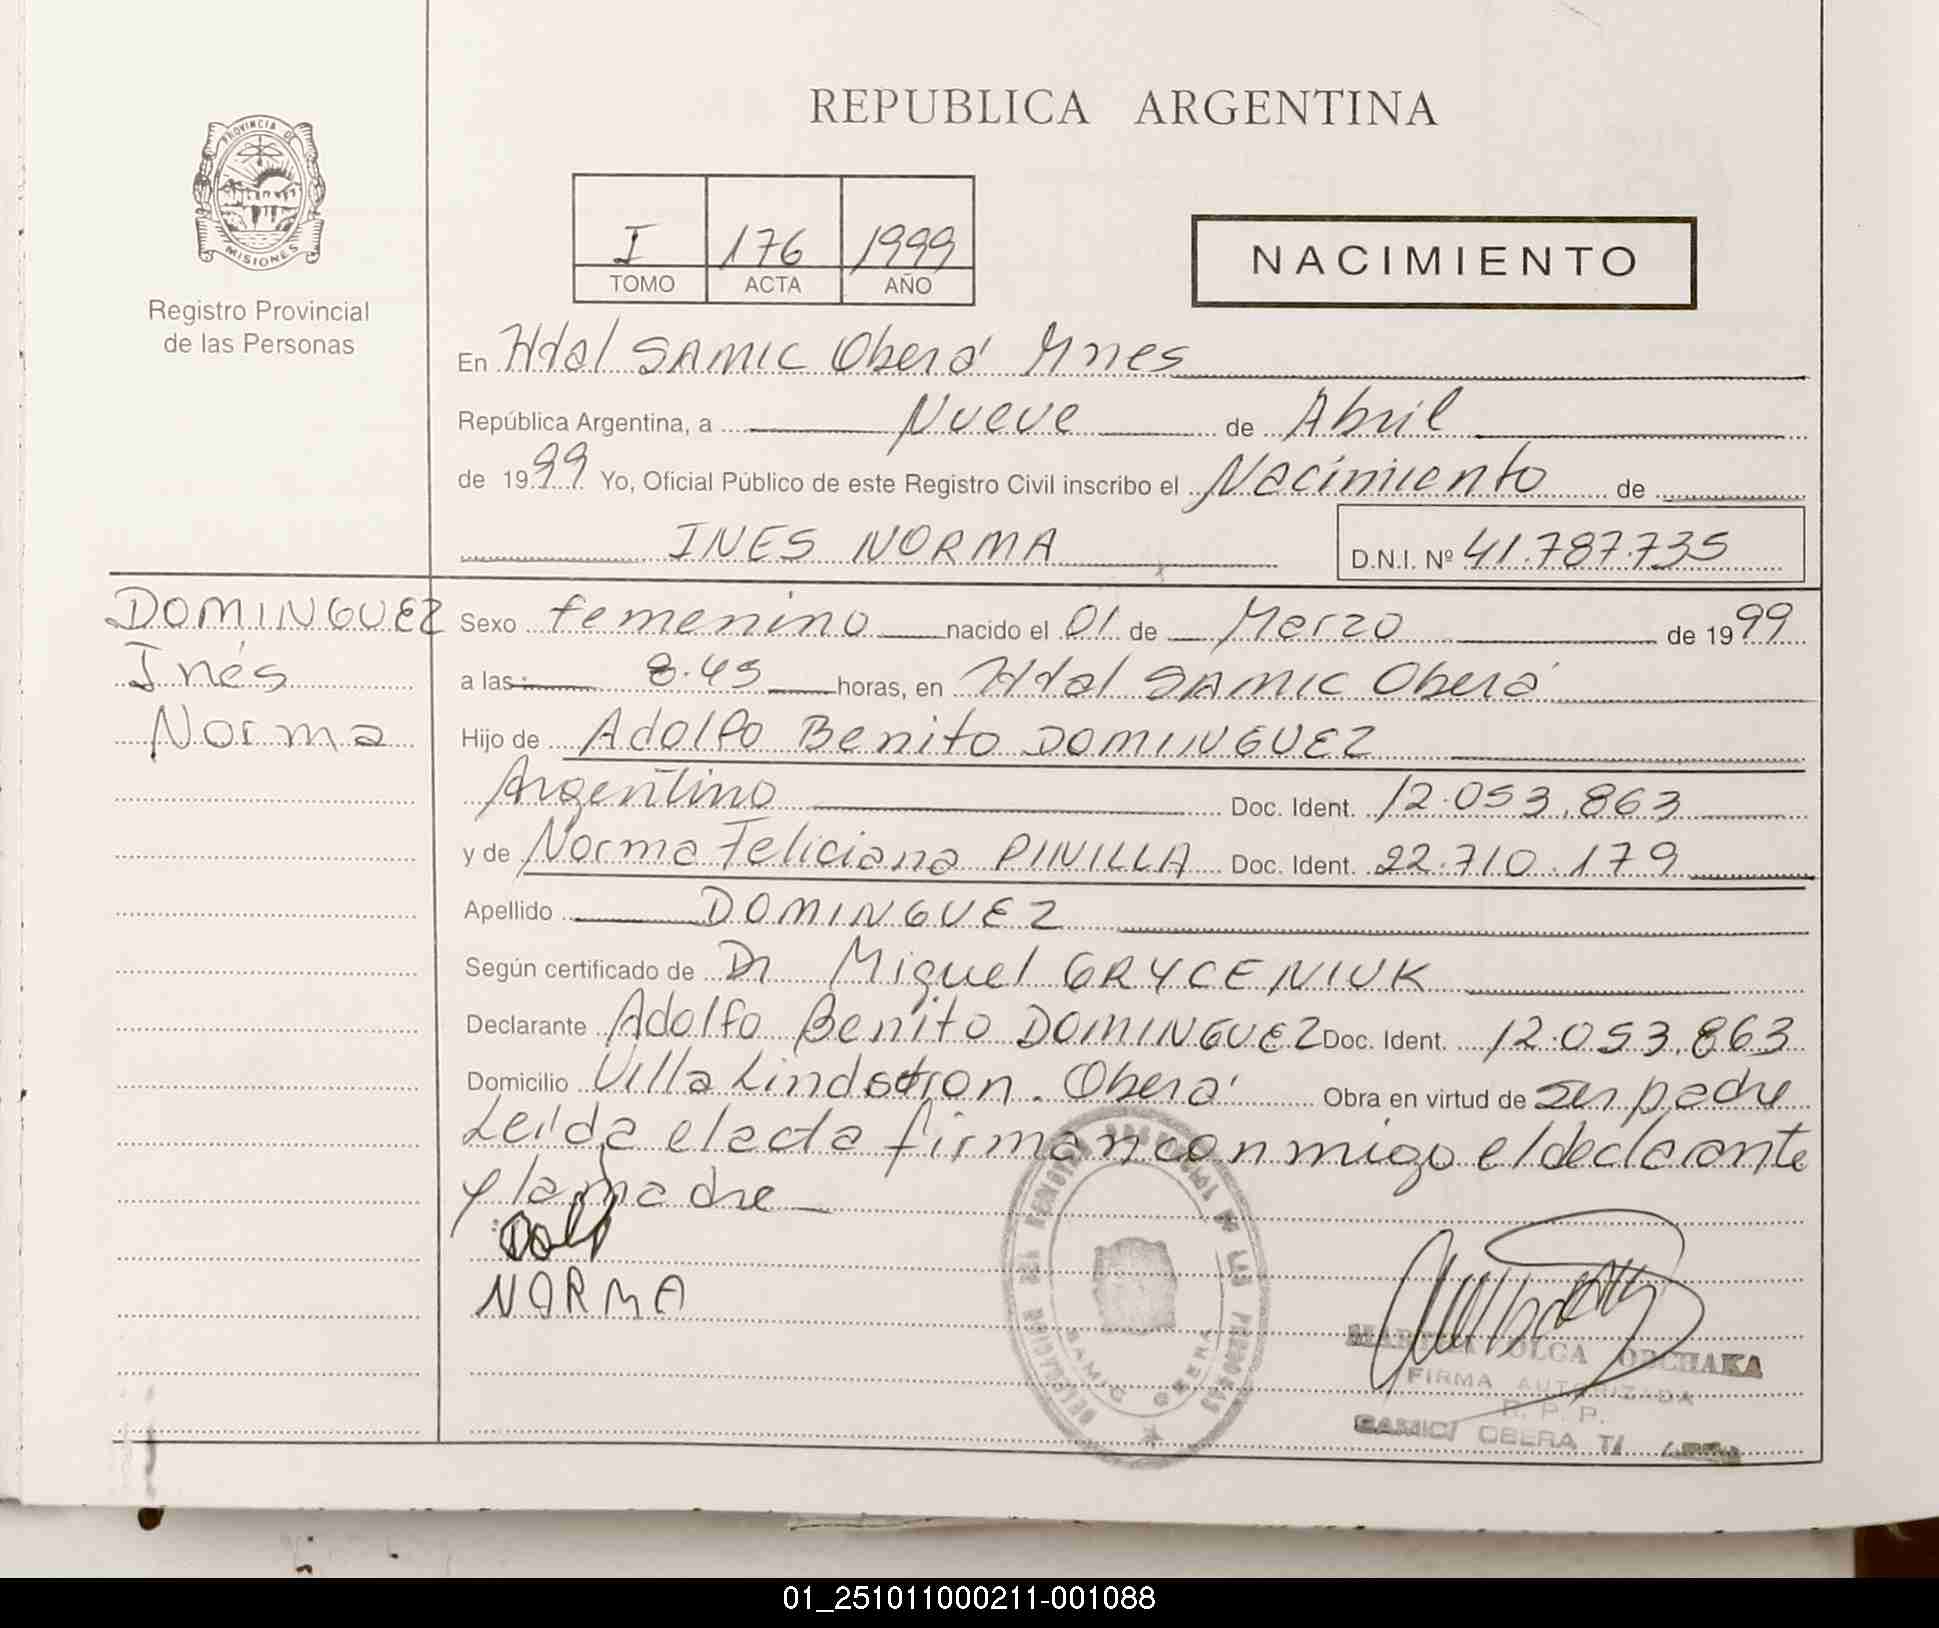 REPUBLICA ARGENTINA
PROVINCIA D
MISIONES
Registro Provincial
de las Personas
I 176 1999
TOMO ACTA AÑO
NACIMIENTO
En Htal SAMIC Oberá Mnes
República Argentina, a Nueve de Abril
de 1999 Yo, Oficial Público de este Registro Civil inscribo el Nacimiento de
INES NORMA D.N.I. Nº 41.787.735
DOMINGUEZ
Inés
Norma
Sexo femenino nacido el 01 de Marzo de 1999
a las 8.45 horas, en Htal SAMIC Oberá
Hijo de Adolfo Benito DOMINGUEZ
Argentino Doc. Ident. 12.053.863
y de Norma Feliciana PINILLA Doc. Ident. 22.710.179
Apellido DOMINGUEZ
Según certificado de Dr Miguel GRYCENIUK
Declarante Adolfo Benito DOMINGUEZ Doc. Ident. 12.053.863
Domicilio Villa Lindstron. Oberá Obra en virtud de ser padre
Leída el acta firman conmigo el declarante
y la madre
NORMA
DE LAS PERSONAS
SAMIC OBERA
OLGA
FIRMA AUTORIZADA
R. P. P.
SAMIC OBERA
01_251011000211-001088